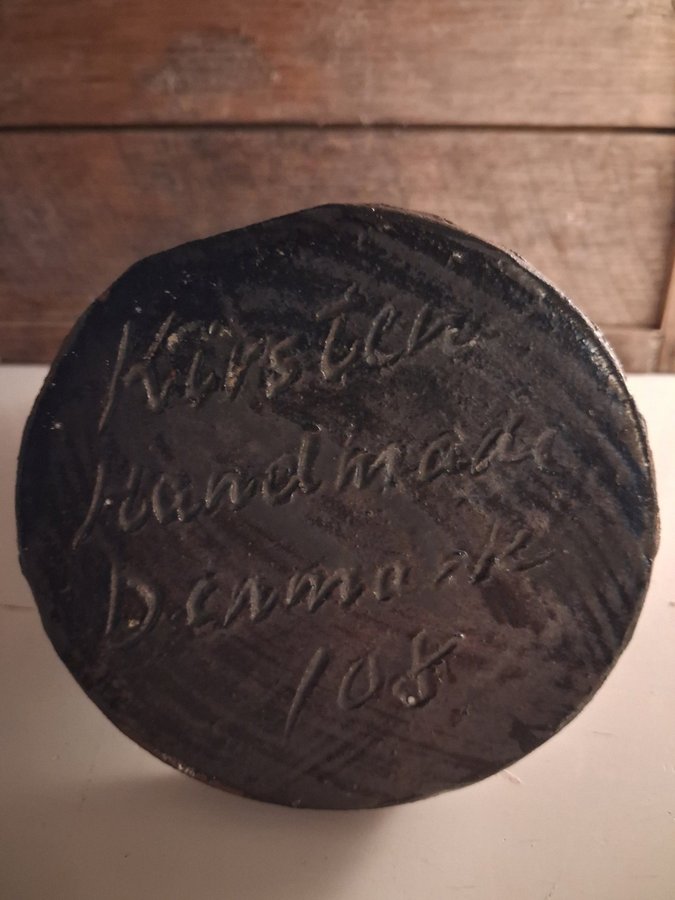 Kirsten
Handmade
Denmark
108